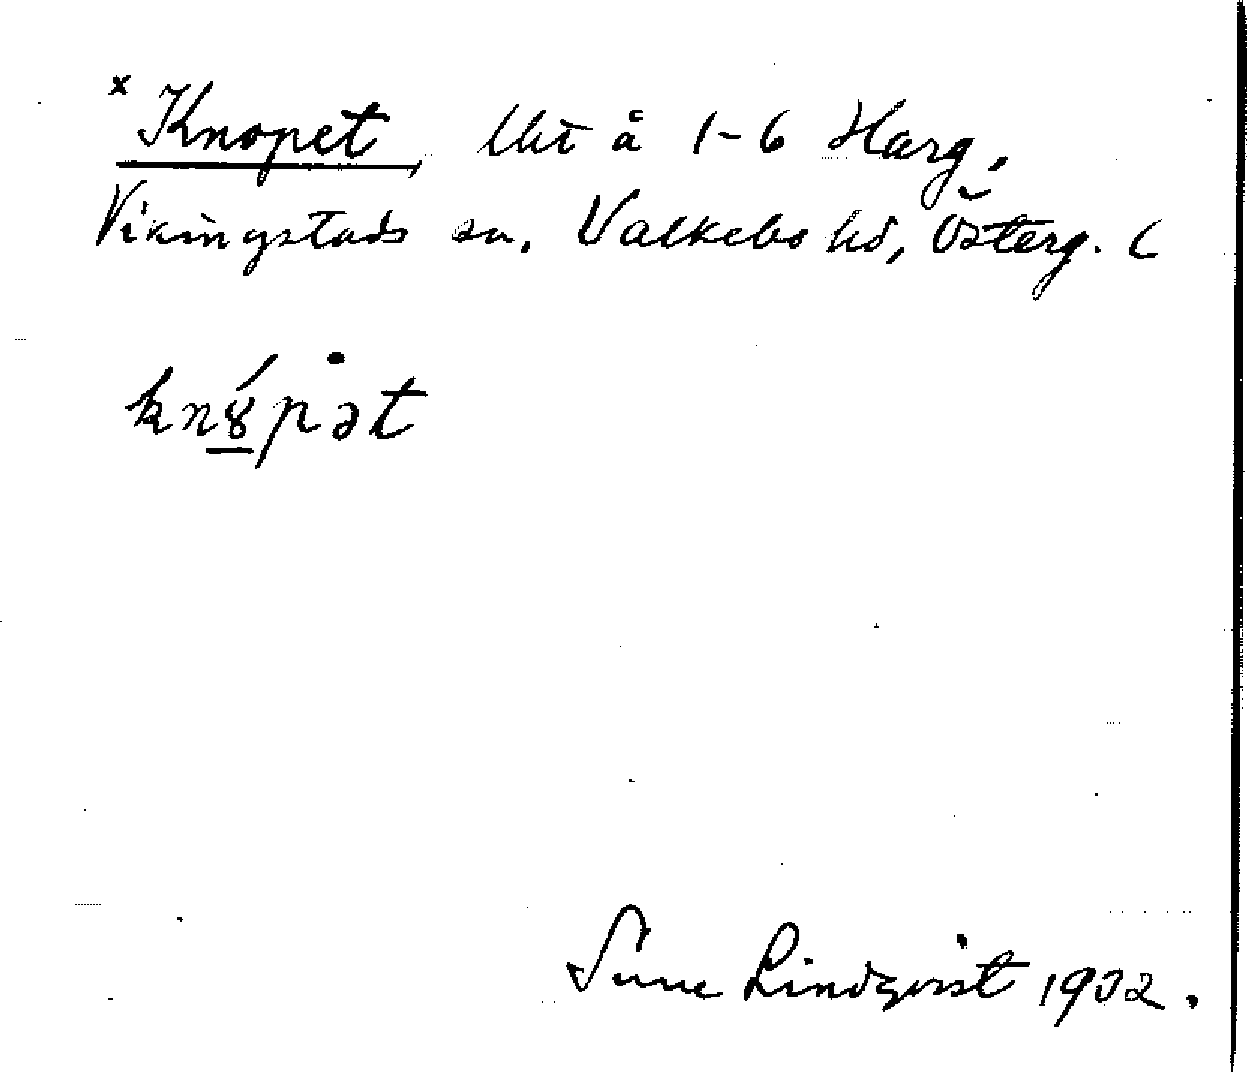 x Knopet, lht å 1-6 Harg,
Vikingstads sn, Valkebo hd, Österg. l
kn8́pət
Sune Lindqvist 1932.